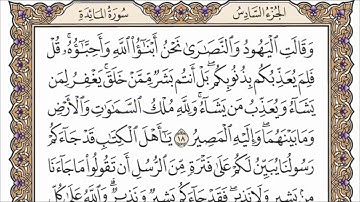 الجزء السادس سورة المائدة
وَقَالَتِ ٱلۡيَهُودُ وَٱلنَّصَٰرَىٰ نَحۡنُ أَبۡنَٰٓؤُاْ ٱللَّهِ وَأَحِبَّٰٓؤُهُۥۚ قُلۡ
فَلِمَ يُعَذِّبُكُم بِذُنُوبِكُمۖ بَلۡ أَنتُم بَشَرٞ مِّمَّنۡ خَلَقَۚ يَغۡفِرُ لِمَن
يَشَآءُ وَيُعَذِّبُ مَن يَشَآءُۚ وَلِلَّهِ مُلۡكُ ٱلسَّمَٰوَٰتِ وَٱلۡأَرۡضِ
وَمَا بَيۡنَهُمَاۖ وَإِلَيۡهِ ٱلۡمَصِيرُ ١٨ يَٰٓأَهۡلَ ٱلۡكِتَٰبِ قَدۡ جَآءَكُمۡ
رَسُولُنَا يُبَيِّنُ لَكُمۡ عَلَىٰ فَتۡرَةٖ مِّنَ ٱلرُّسُلِ أَن تَقُولُواْ مَا جَآءَنَا
مِنۢ بَشِيرٖ وَلَا نَذِيرٖۖ فَقَدۡ جَآءَكُم بَشِيرٞ وَنَذِيرٞۗ وَٱللَّهُ عَلَىٰ كُلِّ